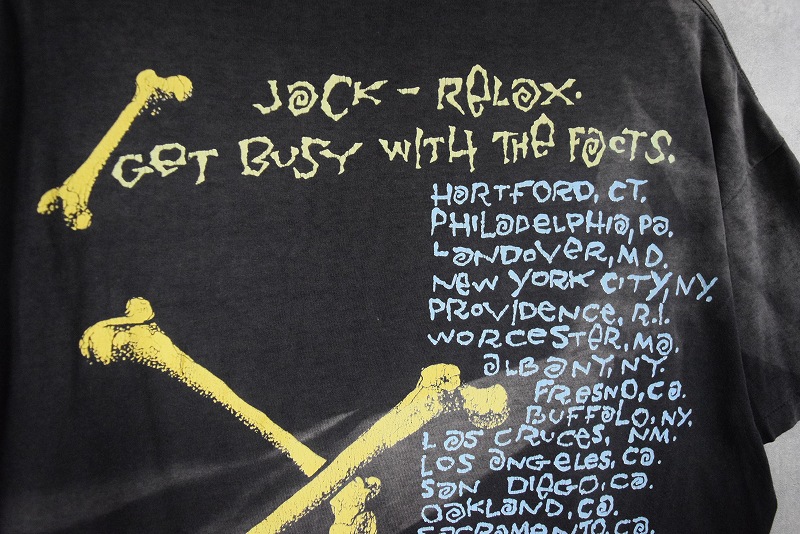 JACK - RELAX.
GET BUSY WITH THE FACTS.
HARTFORD, CT.
PHILADELPHIA, PA.
LANDOVER, MD.
NEW YORK CITY, NY.
PROVIDENCE, R.I.
WORCESTER, MA.
ALBANY, NY.
FRESNO, CA.
BUFFALO, NY.
LAS CRUCES, NM.
LOS ANGELES, CA.
SAN DIEGO, CA.
OAKLAND, CA.
SACRAMENTO, CA.